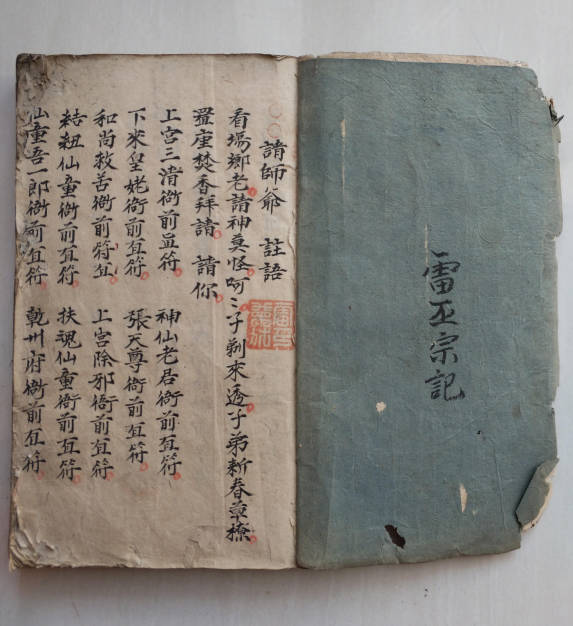 雷丕宗記
請師爺 註語
看塲鄉老請神莫怪呵〻子剃來透子弟新春章撩
置座焚香拜請 請你
上宮三清衙前冝符 神仙老君衙前冝符
下來皇姥衙前冝符 張天尊衙前冝符
和尚救苦衙前符冝 上宮除邪衙前冝符
結紐仙童衙前冝符 扶魂仙童衙前冝符
仙童吾一郎衙前冝符 乾州府衙前冝符